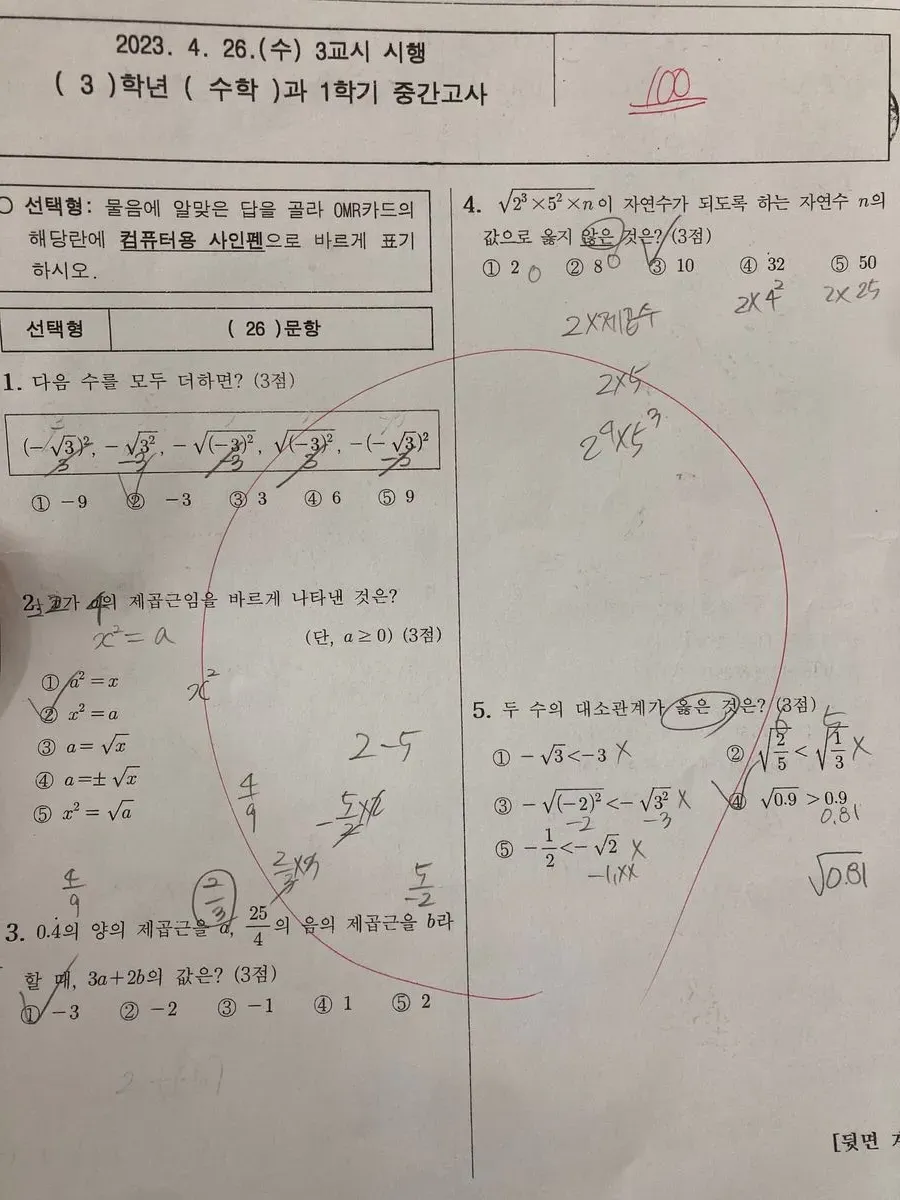 2023. 4. 26.(수) 3교시 시행
( 3 )학년 ( 수학 )과 1학기 중간고사
100
○ 선택형: 물음에 알맞은 답을 골라 OMR카드의
해당란에 컴퓨터용 사인펜으로 바르게 표기
하시오.
선택형 ( 26 )문항
1. 다음 수를 모두 더하면? (3점)
(-√3)², -√3², -√(-3)², √(-3)², -(-√3)²
3 -3 -3 3 -3
① -9 ② -3 ③ 3 ④ 6 ⑤ 9
2. x가 a의 제곱근임을 바르게 나타낸 것은?
x² = a
(단, a≥0) (3점)
① a²=x
x²
② x²=a
③ a=√x
2-5
④ a=±√x
⑤ x²=√a
4/9
-5/2×2
2/3×3
4/9
2/3
5/-2
3. 0.4̇의 양의 제곱근을 a, 25/4의 음의 제곱근을 b라
할 때, 3a+2b의 값은? (3점)
① -3 ② -2 ③ -1 ④ 1 ⑤ 2
4. √2³×5²×n이 자연수가 되도록 하는 자연수 n의
값으로 옳지 않은 것은? (3점)
① 2 ② 8 ③ 10 ④ 32 ⑤ 50
2×제곱수
2×4²
2×25
2×5
2⁴×5³
5. 두 수의 대소관계가 옳은 것은? (3점)
6 5
① -√3<-3 X ② √2/5 < √1/3 X
③ -√(-2)²<-√3² X ④ √0.9 >0.9
-2 -3 0.81
⑤ -1/2<-√2 X
-1.xx
√0.81
[뒷면